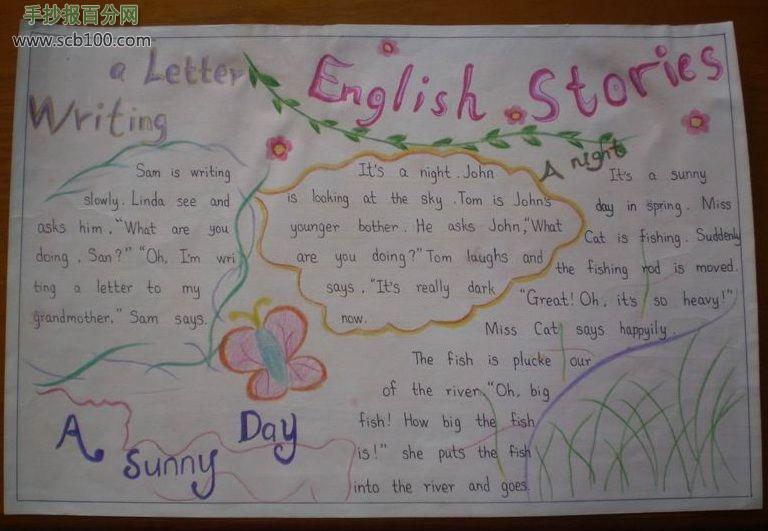 手抄报百分网
www.scb100.com
English Stories
a Letter
Writing
Sam is writing
slowly. Linda see and
asks him, "What are you
doing, San?" "Oh, I'm wri
ting a letter to my
grandmother." Sam says.
A night
It's a night. John
is looking at the sky. Tom is John's
younger bother. He asks John, "What
are you doing?" Tom laughs and
says, "It's really dark
now.
A
Sunny
Day
It's a sunny
day in spring. Miss
Cat is fishing. Suddenly
the fishing rod is moved.
"Great! Oh, it's so heavy!"
Miss Cat says happyily.
The fish is plucke our
of the river. "Oh, big
fish! How big the fish
is!" she puts the fish
into the river and goes.